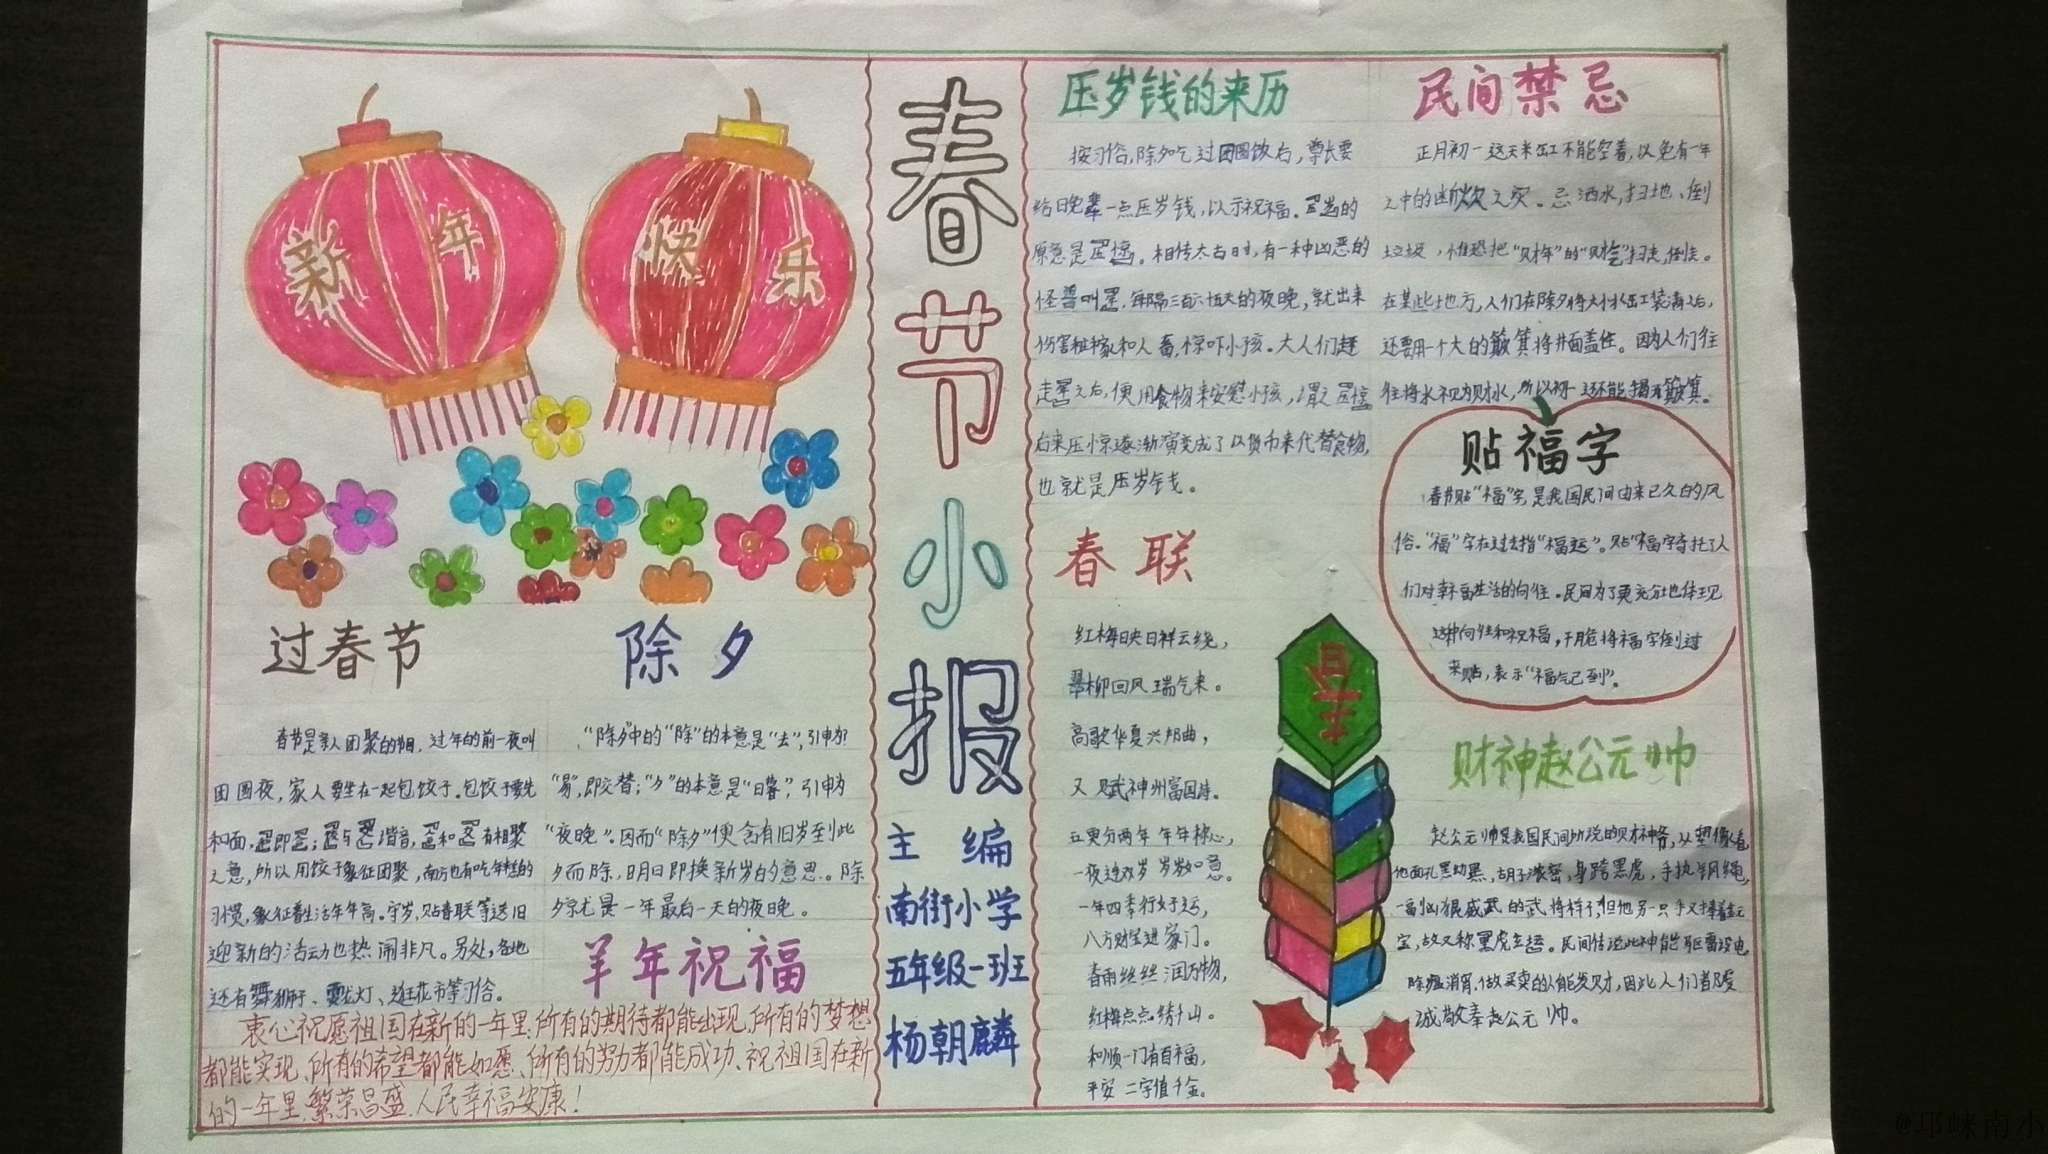 新年
快乐
过春节
春节是亲人团聚的节日，过年的前一夜叫
团圆夜，家人要坐在一起包饺子。包饺子要先
和面，
之意，所以用饺子象征团聚，南方也有吃年糕的
习惯，象征着生活年年高。守岁，贴春联等送旧
迎新的活动也热闹非凡。另处，各地
还有舞狮子、耍龙灯、逛花市等习俗。
除夕
“除夕”中的“除”的本意是“去”，引申为
“易”，即交替；“夕”的本意是“日暮”，引申为
“夜晚”。因而“除夕”便含有旧岁到此
夕而除，明日即换新岁的意思。除
夕就是一年最后一天的夜晚。
羊年祝福
衷心祝愿祖国在新的一年里：所有的期待都能出现，所有的梦想
都能实现、所有的希望都能如愿、所有的努力都能成功、祝祖国在新
的一年里，繁荣昌盛，人民幸福安康！
春节小报
主编
南街小学
五年级一班
杨朝麟
压岁钱的来历
按习俗，除夕吃过团圆饭后，尊长要
给晚辈一点压岁钱，以示祝福。压岁的
原意是压惊。相传太古时，有一种凶恶的
怪兽叫，每隔三百六十五天的夜晚，就出来
伤害稼和人畜，惊吓小孩。大人们赶
走之后，便用食物来安慰小孩，谓之压惊
后来压惊逐渐演变成了以货币来代替食物，
也就是压岁钱。
春联
红梅映日祥云绕，
翠柳回风瑞气来。
高歌华夏兴邦曲，
又赋神州富国诗。
五更分两年年年称心，
一夜连双岁岁岁如意。
一年四季行好运，
八方财宝进家门。
春雨丝丝润万物，
红梅点点绣千山。
和顺一门有百福，
平安二字值千金。
春
民间禁忌
正月初一这天米缸不能空着，以免有一年
之中的断炊之灾。忌洒水，扫地、倒
垃圾，惟恐把“财年”的“财气”扫走，倒走。
在某些地方，人们在除夕将大水缸装满之后，
还要用一个大的簸箕将井面盖住。因为人们往
往将水视为财水，所以初一还不能揭开簸箕。
贴福字
春节贴“福”字，是我国民间由来已久的风
俗。“福”字在过去指“福运”。贴“福字寄托了人
们对幸福生活的向往。民间为了更充分地体现
这种向往和祝福，干脆将福字倒过
来贴，表示“福气已到”。
财神赵公元帅
赵公元帅是我国民间所说的财神爷，从塑像看，
他面孔黑幼黑，胡子浓密，身跨黑虎，手执钢绳，
一副凶狠威武的武将样子，但他另一只手又捧着金元
宝，故又称黑虎玄坛。民间传说此神能驱雷役电
除瘟消宵，做买卖的人能发财，因此人们都虔
诚敬奉赵公元帅。